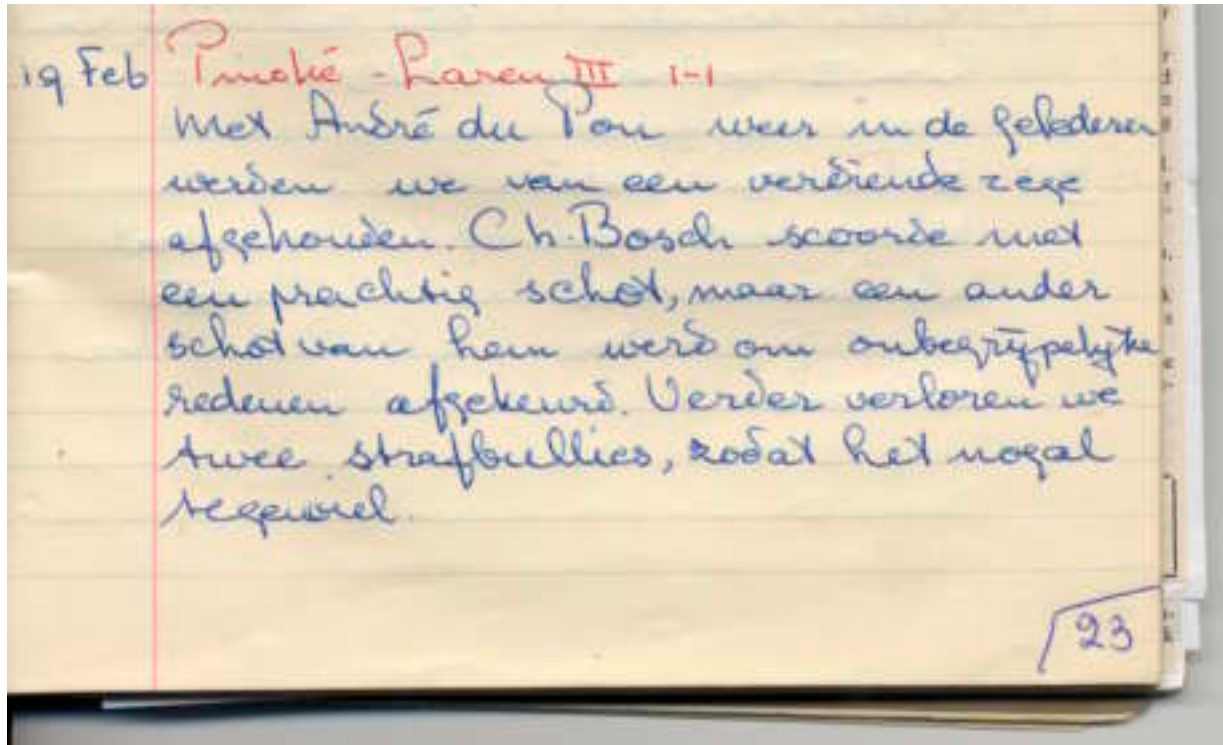 19 Feb Pinoké - Laren III 1-1
Met André du Pon weer in de gelederen
werden we van een verdiende zege
afgehouden. Ch. Bosch scoorde met
een prachtig schot, maar een ander
schot van hem werd om onbegrijpelijke
redenen afgekeurd. Verder verloren we
twee strafbullies, zodat het nogal
tegenviel.
23